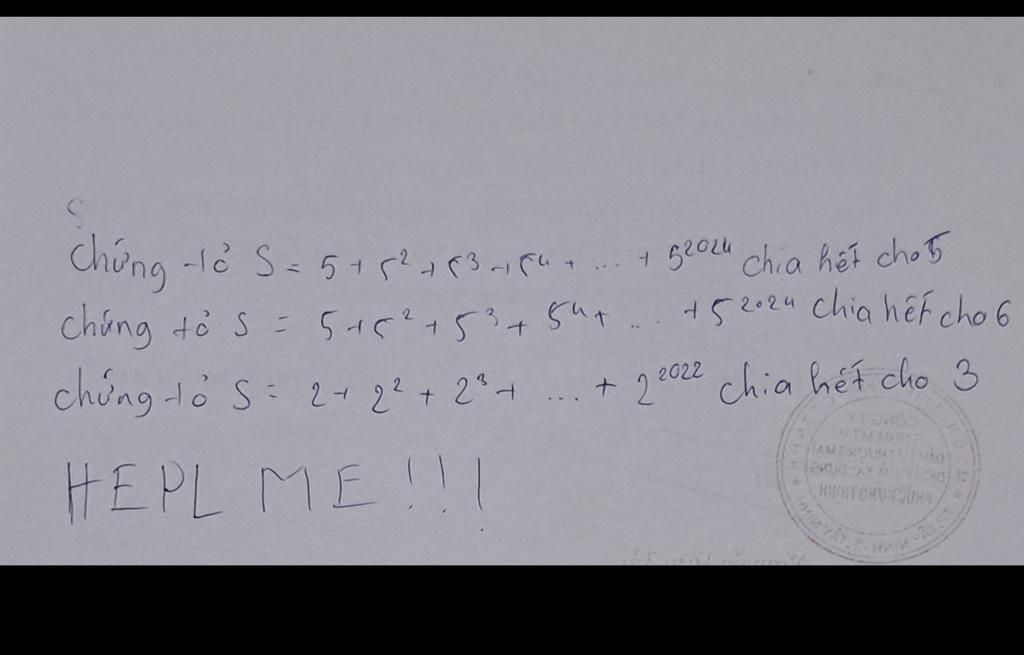 Chứng tỏ S = 5 + 5² + 5³ + 5⁴ + ... + 5²⁰²⁴ chia hết cho 5
chứng tỏ S = 5 + 5² + 5³ + 5⁴ + ... + 5²⁰²⁴ chia hết cho 6
chứng tỏ S = 2 + 2² + 2³ + ... + 2²⁰²² chia hết cho 3
HEPL ME !!!
CÔNG TY
TNHH MTV